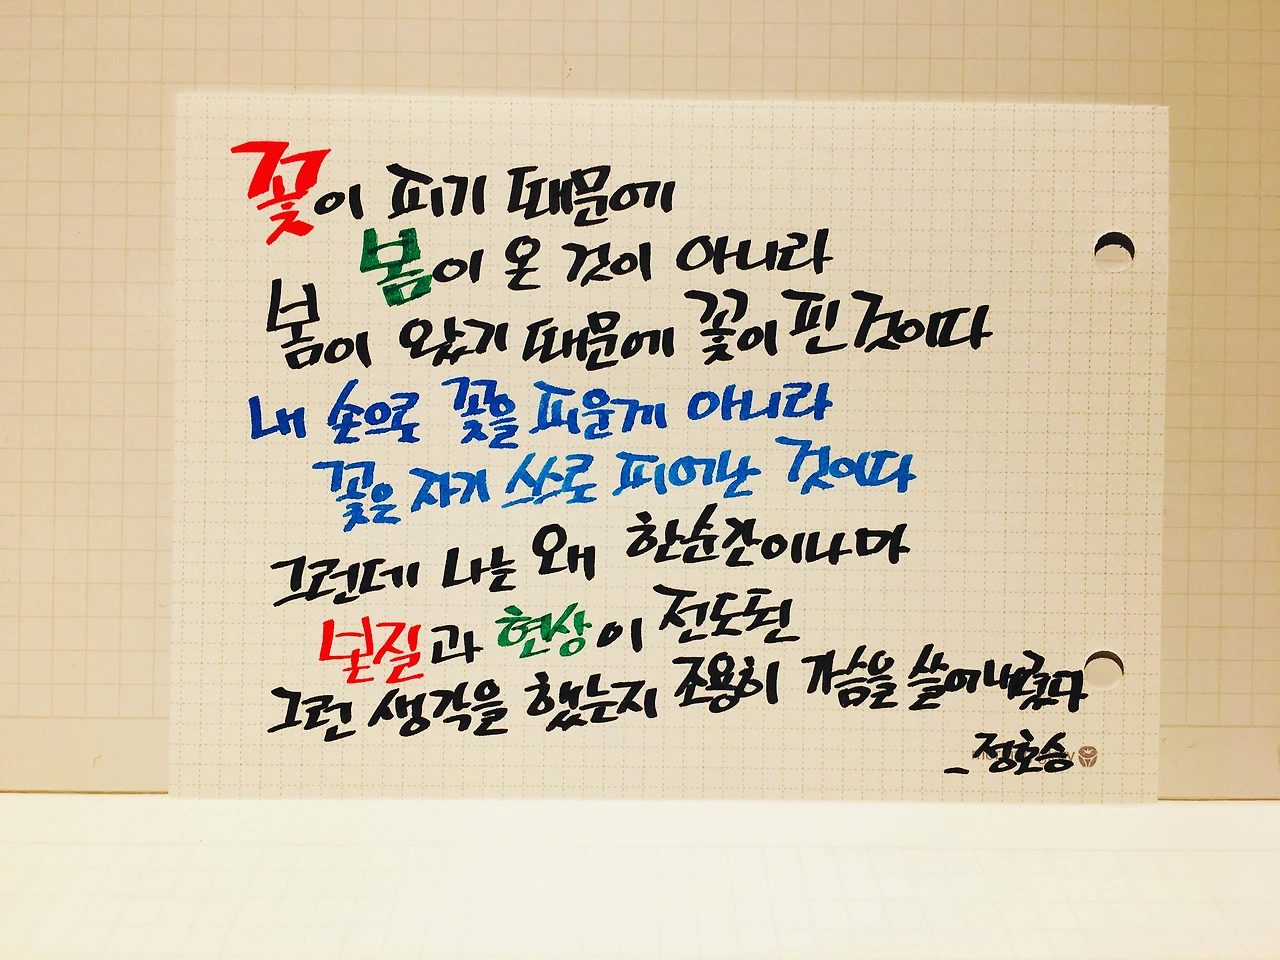 꽃이 피기 때문에
봄이 온 것이 아니라
봄이 왔기 때문에 꽃이 핀 것이다
내 손으로 꽃을 피운게 아니라
꽃은 자기 스스로 피어난 것이다
그런데 나는 왜 한순간이나마
본질과 현상이 전도된
그런 생각을 했는지 조용히 가슴을 쓸어내렸다
_정호승